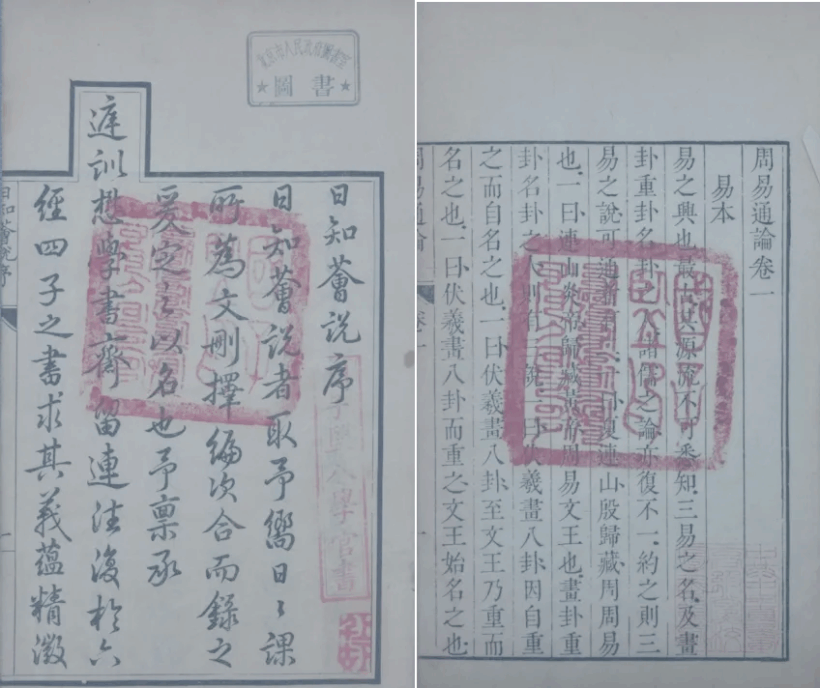 圖書
日知薈說序
日知薈說者取予嚮日〻課
所為文刪擇編次合而錄之
爰定之以名也予稟承
庭訓學書齋留連往復於六
經四子之書求其義蘊精微
日知薈說序
周易通論卷一
易本
易之興也最古其源流不可悉知三易之名及畫
卦重卦名卦之人諸儒之論亦復不一約之則三
易之說可通者有二一曰夏連山殷歸藏周周易
也一曰連山炎帝歸藏黃帝周易文王也畫卦重
卦名卦之人則有三說一曰伏羲畫八卦因自重
之而自名之也一曰伏羲畫八卦至文王乃重而
名之也一曰伏羲畫八卦而重之文王始名之也
周易通論